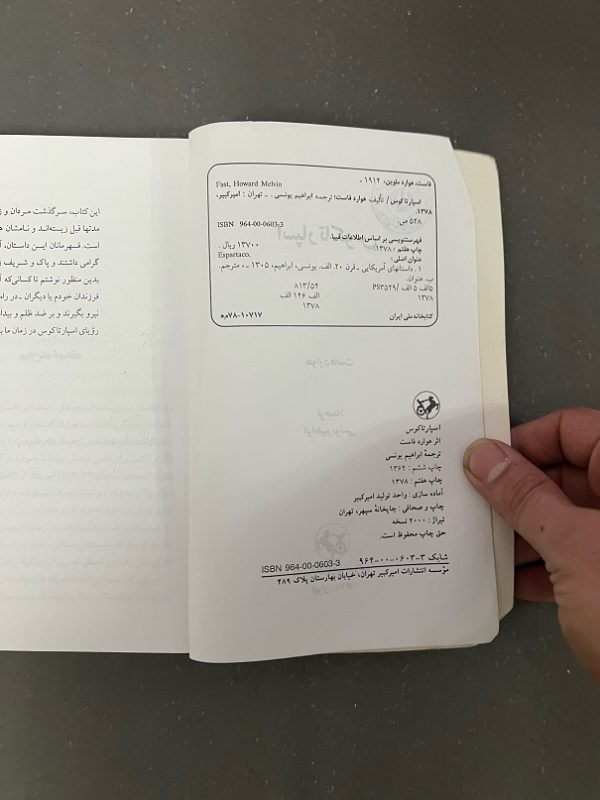 فاست، هوارد ملوین، ۱۹۱۴ -
Fast, Howard Melvin
اسپارتاکوس / تألیف هوارد فاست؛ ترجمه ابراهیم یونسی. - تهران: امیرکبیر،
۱۳۷۸.
۵۲۸ ص.
ISBN 964-00-0603-3
فهرستنویسی بر اساس اطلاعات فیپا.
چاپ هفتم: ۱۳۷۸؛ ۱۳۷۰۰ ریال.
عنوان اصلی:
Espartaco.
۱ . داستانهای آمریکایی - قرن ۲۰. الف. یونسی، ابراهیم، ۱۳۰۵ - ، مترجم.
ب. عنوان.
۵الف ۵ الف/ PS۳۵۲۹
۸۱۳/۵۴
۱۳۷۸
الف ۱۴۶ الف
۱۳۷۸
کتابخانه ملی ایران
م۷۸-۱۰۷۱۷
اسپارتاکوس
اثر هوارد فاست
ترجمهٔ ابراهیم یونسی
چاپ ششم : ۱۳۶۲
چاپ هفتم : ۱۳۷۸
آماده سازی : واحد تولید امیرکبیر
چاپ و صحافی : چاپخانهٔ سپهر، تهران
تیراژ : ۲۰۰۰ نسخه
حق چاپ محفوظ است.
شابک ۳-۰۶۰۳-۰۰-۹۶۴ ISBN 964-00-0603-3
مؤسسه انتشارات امیرکبیر تهران، خیابان بهارستان پلاک ۴۸۹
این کتاب، سرگذشت مردان و
مدتها قبل زیسته‌اند و نامشان
است. قهرمانان این داستان،
گرامی داشتند و پاک و شریف
بدین منظور نوشتم تا کسانی‌که
فرزندان خودم یا دیگران - در
نیرو بگیرند و بر ضد ظلم و
رؤیای اسپارتاکوس در زمان ما